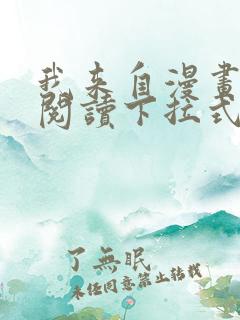 我来自漫畫
閱讀下拉式
了無眠
未經同意禁止轉載